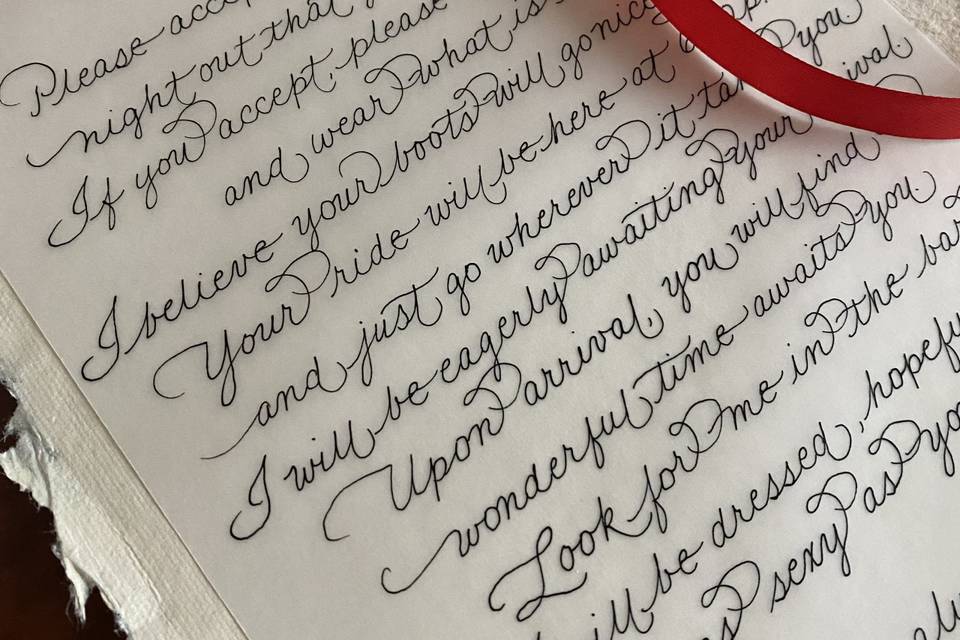 Please
night out that
If you accept, please
and wear what is
I believe your boots will go nice
Your ride will be here at
and just go wherever it
I will be eagerly awaiting your
Upon arrival, you will find
wonderful time awaits you.
Look for me in the
be dressed,
sexy as